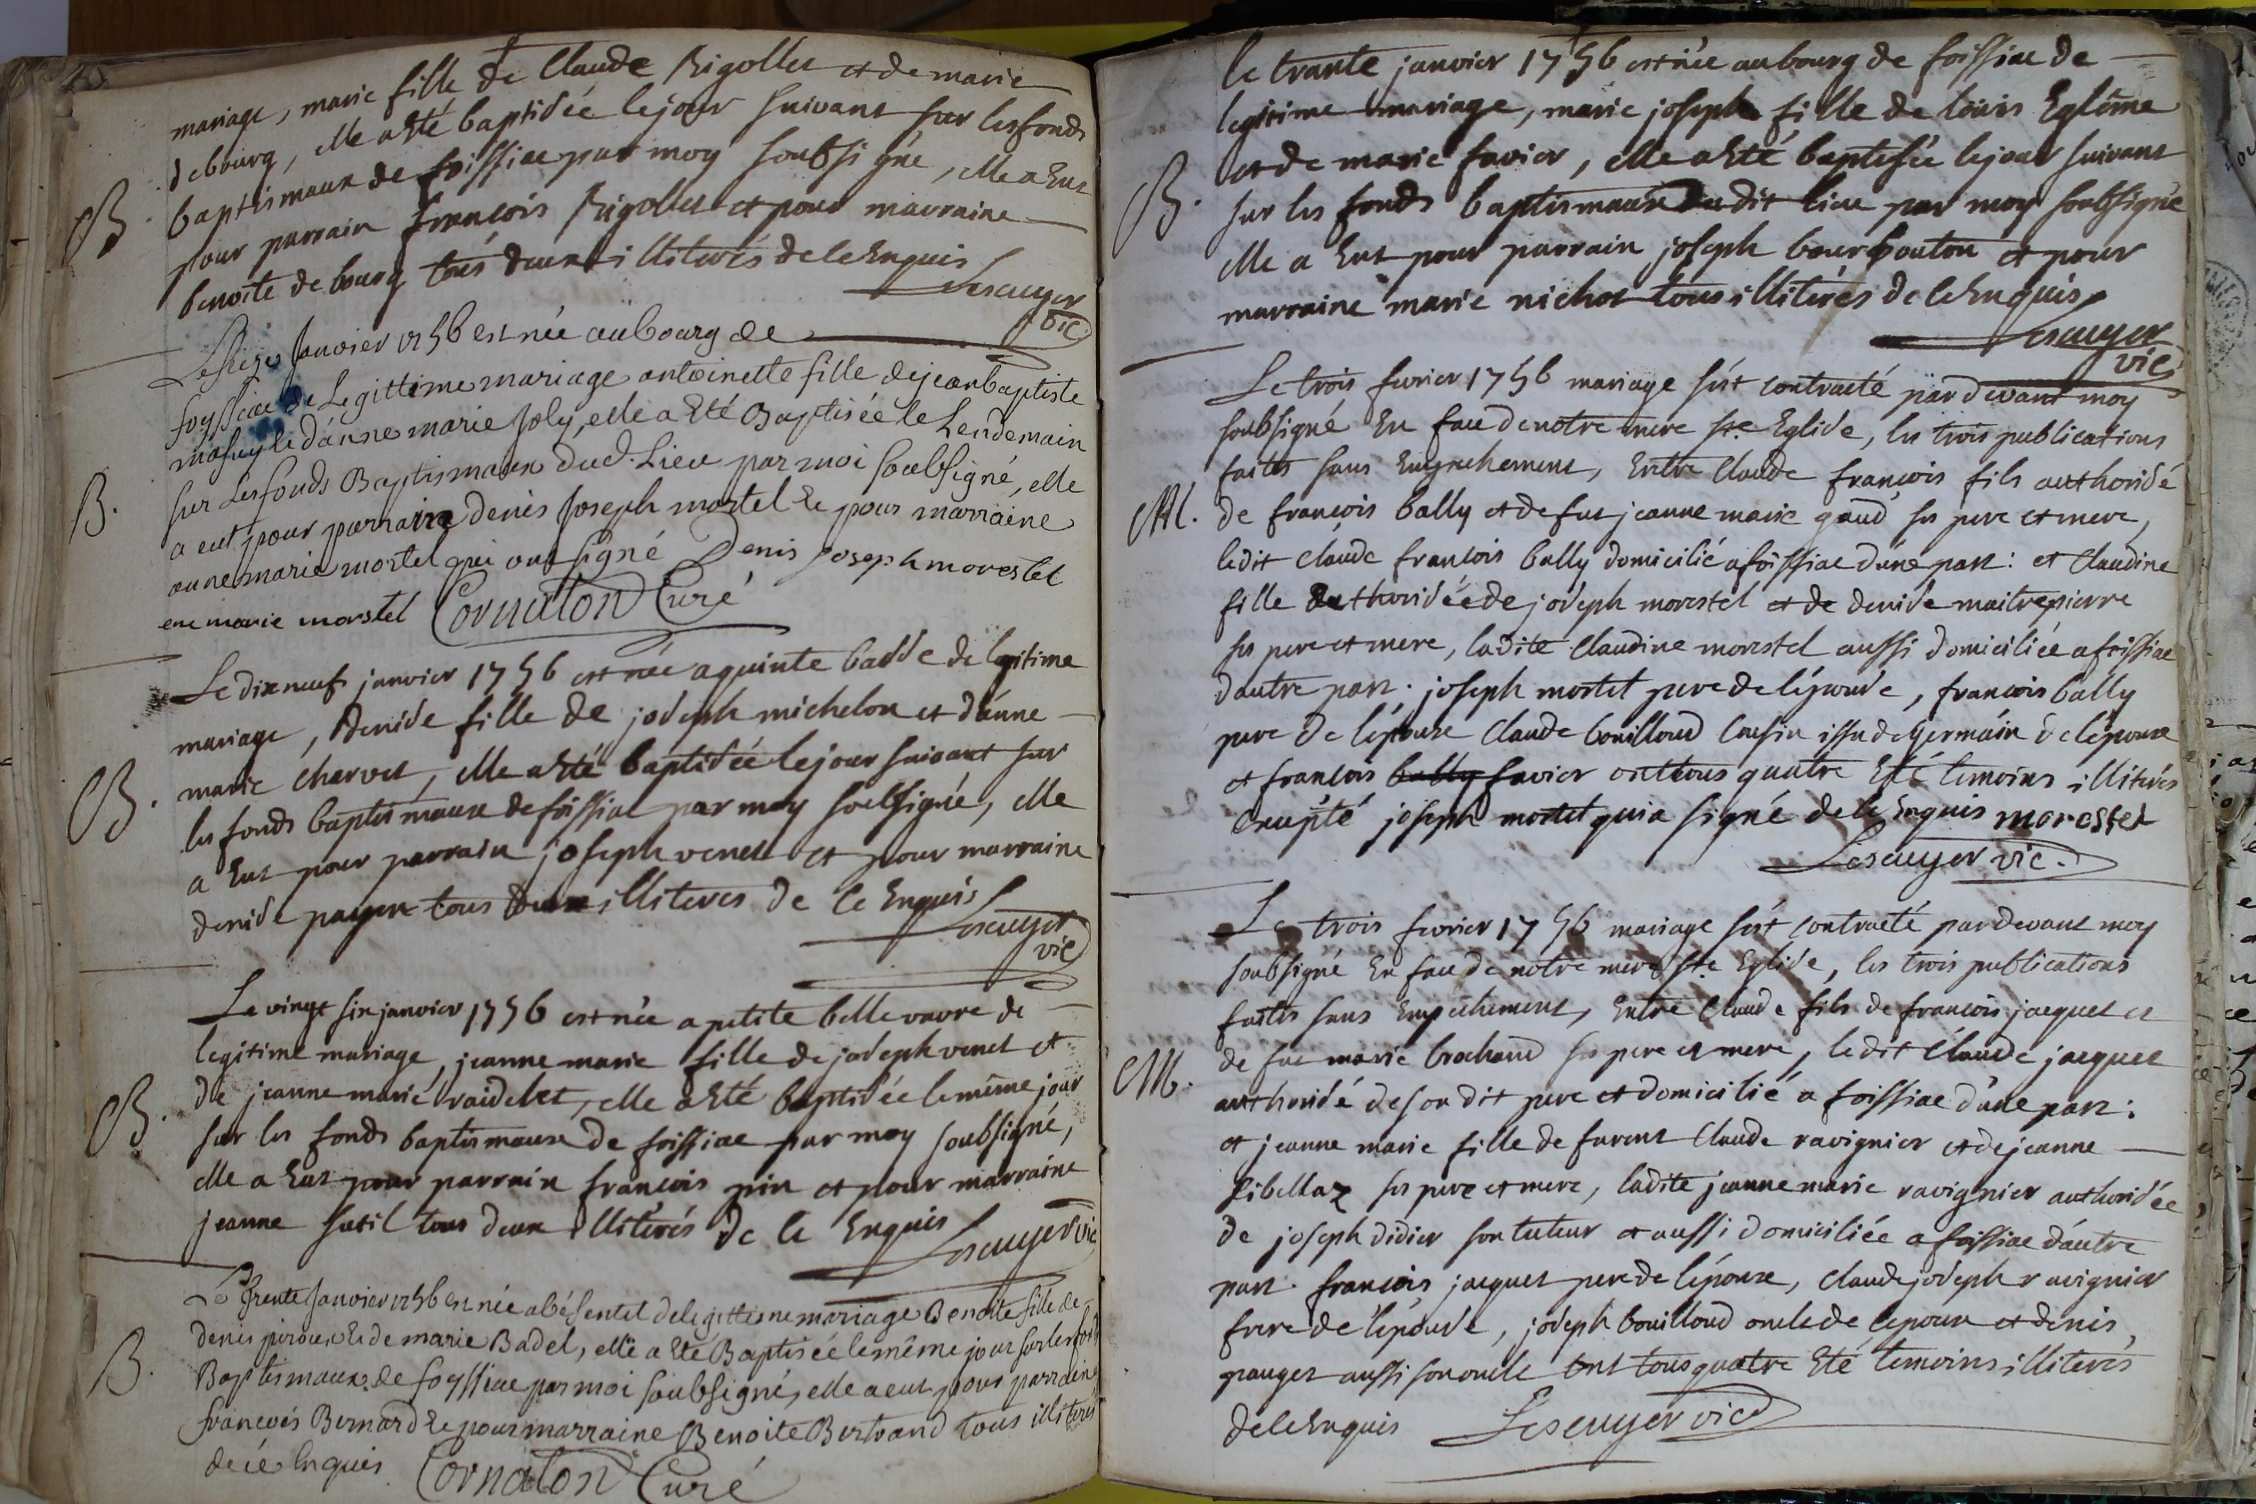 mariage, marie fille de Claude Rigollet et de marie
debourg, elle a Eté baptisée le jour suivant sur les fonds
B. baptismaux de foissiac par moy soubsigné, elle a Eut
pour parrain françois Rigollet et pour marraine
benoite de bourg tous deux illiterés de ce Enquis
Lescuyer
vic
Le Seize Janvier 1756 est née au bourg de
foyssiac de Legittime mariage antoinette fille de jean baptiste
et d'anne marie Joly, elle a Eté Baptisée le Lendemain
B. sur Les fonds Baptismaux dud. Lieu par moi soubsigné, elle
a eut pour parrain denis Joseph mostel & pour marraine
anne marie mostel qui ont signé Denis Joseph morestel
ene marie morstel Cornaton Curé
Le dix neuf janvier 1756 est née a quinte basse de legitime
mariage, denise fille de joseph michelon et d'anne
B. marie charvet, elle a Eté baptisée le jour suivant sur
les fonds baptismaux de foissiac par moy soubsigné, elle
a Eut pour parrain joseph venet et pour marraine
denise payen tous deux illiteres de ce Enquis
Lescuyer
vic
Le vingt six janvier 1756 est née a petite bellevavre de
legitime mariage, jeanne marie fille de joseph venet et
B. de jeanne marie raidelet, elle a Eté baptisée le même jour
sur les fonds baptismaux de foissiac par moy soubsigné,
elle a Eut pour parrain françois pin et pour marraine
jeanne sutil tous deux illiterés de ce Enquis Lescuyer vic
Le Trente Janvier 1756 est née a bésentet de legittime mariage Benoite fille de
denis piroux & de marie Badel, elle a Eté Baptisée le même jour sur les fonds
B. Baptismaux de foyssiac par moi soubsigné, elle a eut pour parrain
françois Bernard & pour marraine Benoite Bertrand tous illiterés
de cé Enquis Cornaton Curé
le trante janvier 1756 est née au bourg de foissiac de
legitime mariage, marie joseph fille de louis Egléme
et de marie favier, elle a Eté baptisée le jour suivant
B. sur les fonds baptismaux du dit lieu par moy soubsigné
elle a Eut pour parrain joseph bourbouton et pour
marraine marie nichot tous illiterés de ce Enquis
Lescuyer
vic
Le trois fevrier 1756 mariage s'est contracté par devant moy
soubsigné En face de notre mere ste Eglise, les trois publications
faites sans Empechement, Entre Claude françois fils authorisé
M. de françois bally et de fut jeanne marie gaud ses pere et mere,
ledit claude françois bally domicilié a foissiac d'une part: et Claudine
fille authorisée de joseph morestel et de denise maitrepierre
ses pere et mere, ladite Claudine morestel aussi domiciliée a foissiac
d'autre part. joseph mostel pere de l'épouse, françois bally
pere de l'époux Claude bouilloud Cousin issu de Germain de l'époux
et françois bally favier ont tous quatre Eté temoins illiterés
Excepté joseph mostel qui a signé de ce Enquis morestel
Lescuyer vic.
Le trois fevrier 1756 mariage s'est contracté par devant moy
soubsigné En face de notre mere ste Eglise, les trois publications
faites sans Empechement, Entre Claude fils de françois jacquet et
M. de fue marie brochand ses pere et mere, le dit Claude jacquet
authorisé de son dit pere et domicilié a foissiac d'une part:
et jeanne marie fille de furent Claude ravignier et de jeanne
Sibellaz ses pere et mere, ladite jeanne marie ravignier authorisée
de joseph didier son tuteur et aussi domiciliée a foissiac d'autre
part. françois jacquet pere de l'époux, claude joseph ravignier
frere de l'épouse, joseph bouilloud oncle de l'epoux et denis
granget aussi son oncle ont tous quatre Eté temoins illiterés
de ce Enquis Lescuyer vic